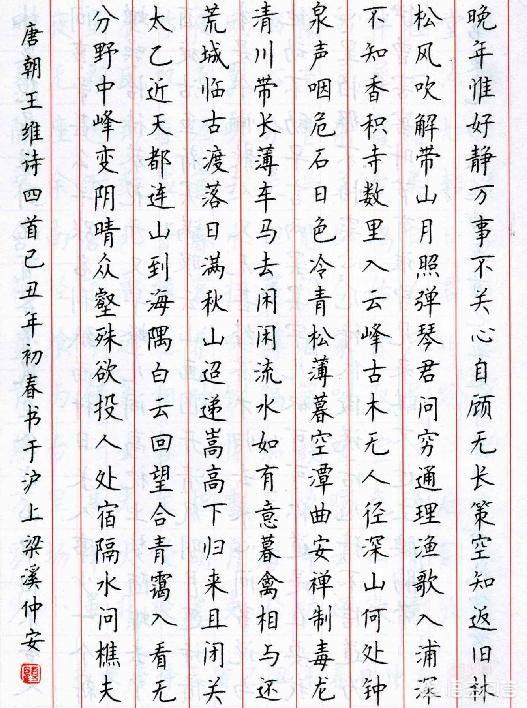 晚年惟好静万事不关心自顾无长策空知返旧林
松风吹解带山月照弹琴君问穷通理渔歌入浦深
不知香积寺数里入云峰古木无人径深山何处钟
泉声咽危石日色冷青松薄暮空潭曲安禅制毒龙
清川带长薄车马去闲闲流水如有意暮禽相与还
荒城临古渡落日满秋山迢递嵩高下归来且闭关
太乙近天都连山到海隅白云回望合青霭入看无
分野中峰变阴晴众壑殊欲投人处宿隔水问樵夫
唐朝王维诗四首己丑年初春书于沪上梁溪仲安